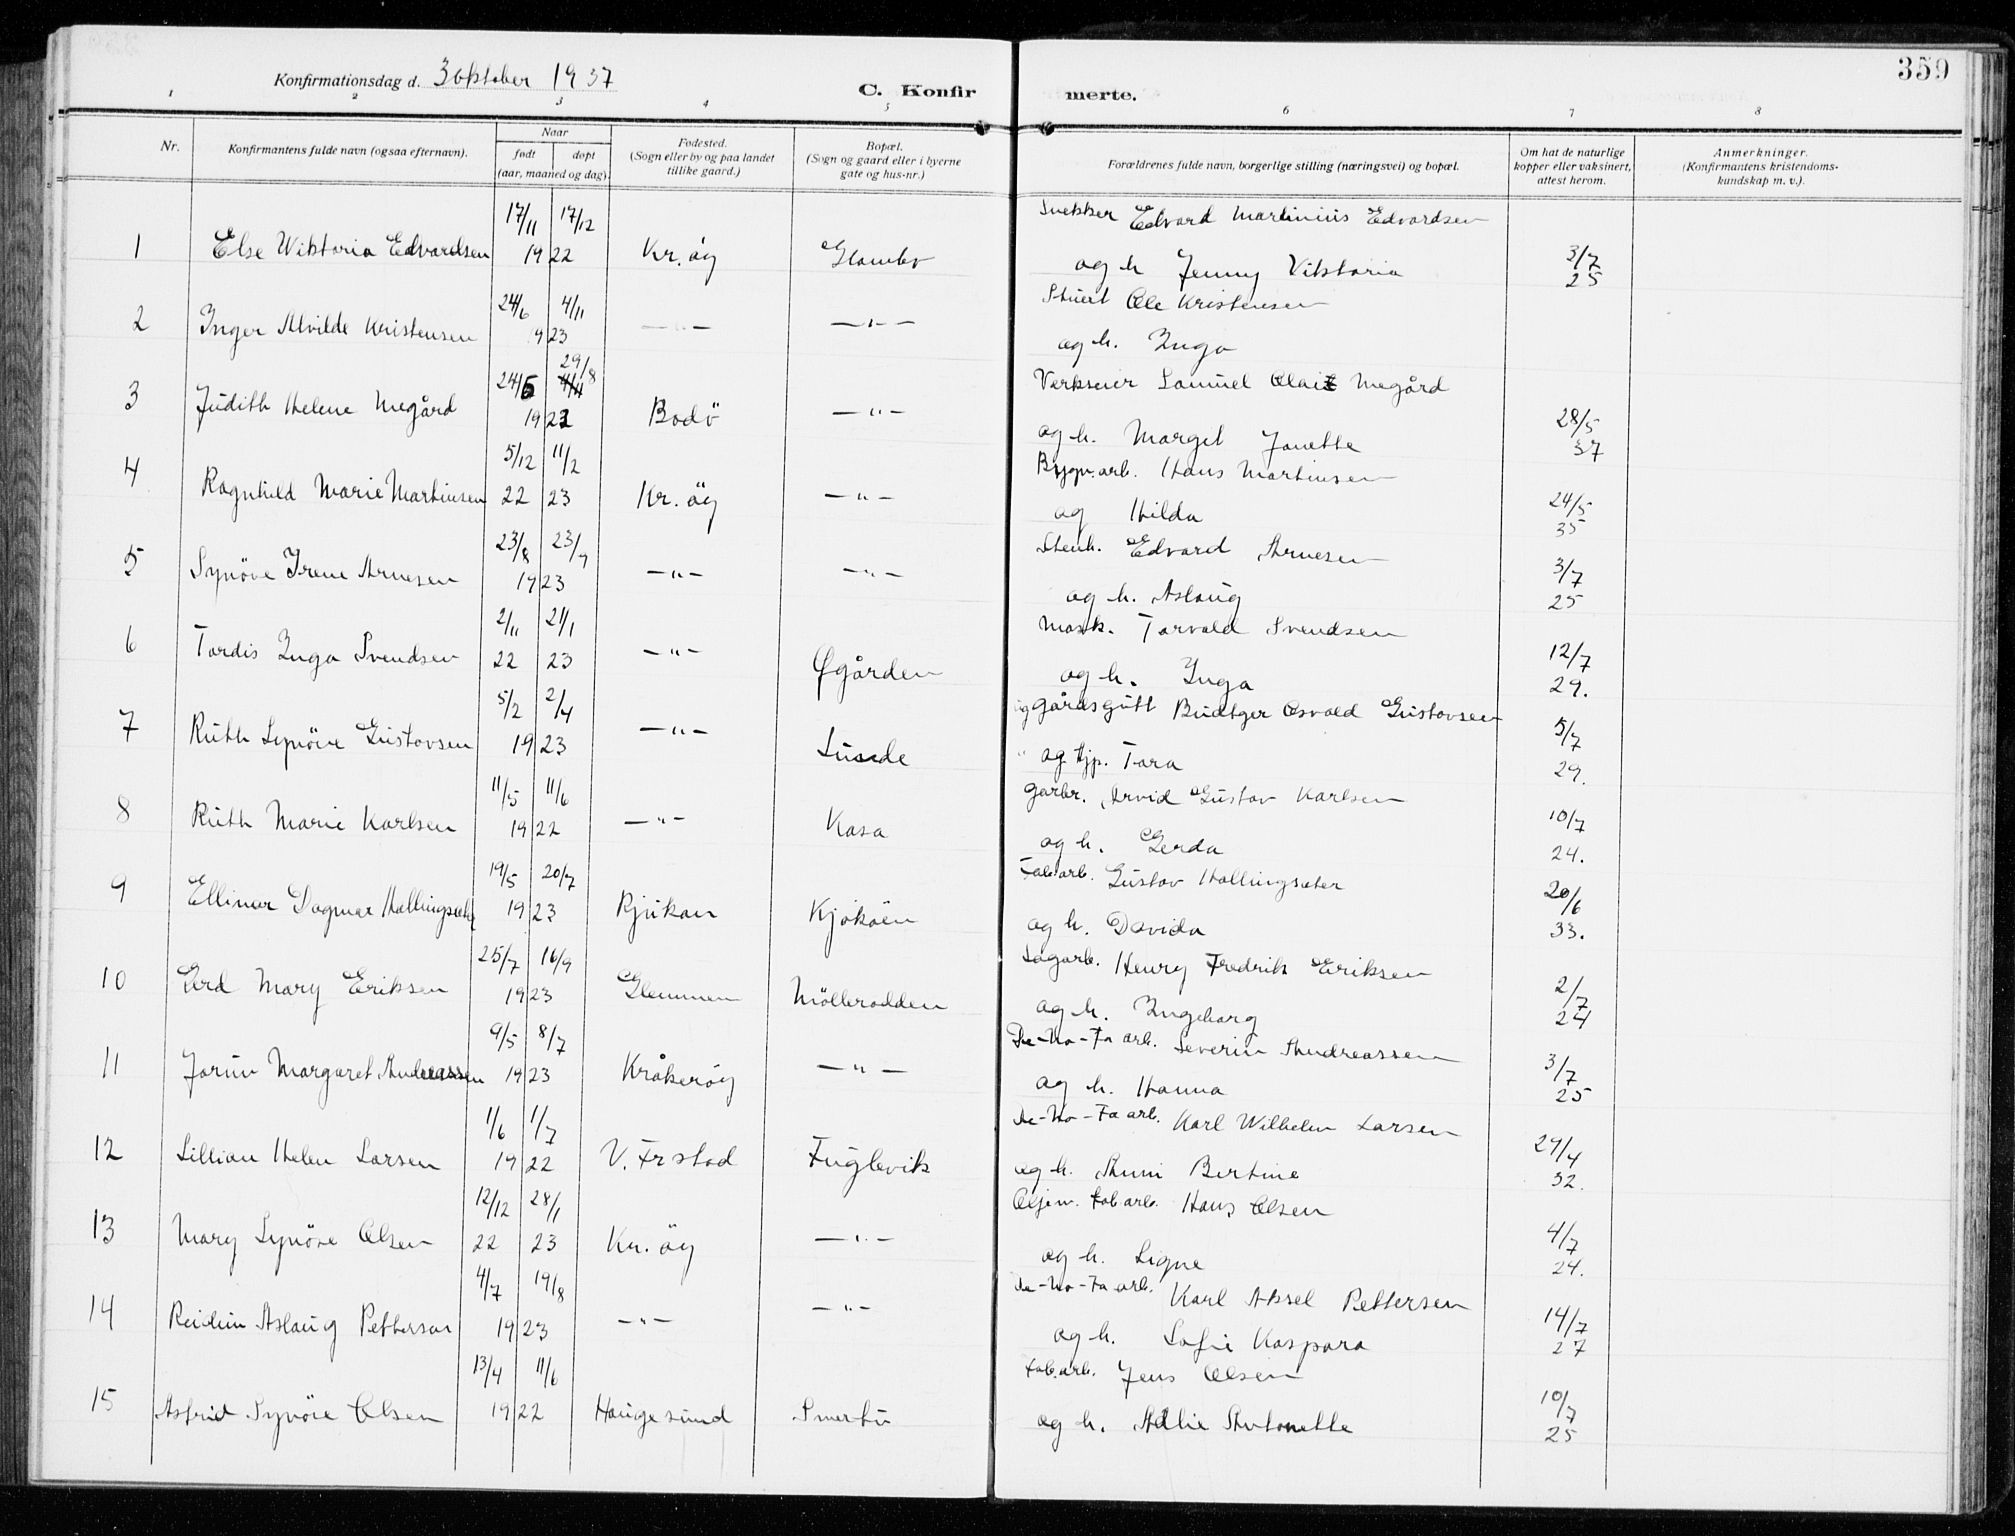 359
Konfirmationsdag d. 3 oktober 1937
C. Konfirmerte.
1 2 3 4 5 6 7 8
Nr.
Konfirmantens fulde navn (ogsaa efternavn).
Naar
født døpt
(aar, maaned og dag)
Fødested.
(Sogn eller by og paa landet
tillike gaard.)
Bopæl.
(Sogn og gaard eller i byerne
gate og hus-nr.)
Forældrenes fulde navn, borgerlige stilling (næringsvei) og bopæl.
Om hat de naturlige
kopper eller vaksinert,
attest herom.
Anmerkninger.
(Konfirmantens kristendoms-
kundskap m. v.).
17/11 17/12 Snekker Edvard Martinius Edvardsen
1 Else Wiktoria Edvardsen 1922 Kr. öy Glombo og h Jenny Viktoria 3/7 25
24/6 4/11 Stuert Ole Kristensen
2 Inger Alvilde Kristensen 1923 —"— —"— og h. Inga
24/5 29/8 Verkseier Samuel Olai Megård
3 Judith Helene Megård 1922 Bodö —"— og h. Margit Janette 28/5 37
5/12 11/2 Bygn.arb. Hans Martinsen
4 Ragnhild Marie Martinsen 22 23 Kr. öy —"— og Hilda 24/5 35
23/8 23/7 Stenh. Edvard Arnesen
5 Synöve Irene Arnesen 1923 —"— —"— og h. Aslaug 3/7 25
2/11 21/1 Mask. Torvald Svendsen
6 Tordis Inga Svendsen 22 23 —"— Øgården og h. Inga 12/7 29.
5/2 2/4 gårdsgutt Budtger Osvald Gustavsen
7 Ruth Synöve Gustavsen 1923 —"— Lunde og Hjp. Tora 5/7 29.
11/5 11/6 garbr. Arvid Gustav Karlsen
8 Ruth Marie Karlsen 1922 —"— Kasa og h. Gerda 10/7 24.
19/5 20/7 Fab.arb. Gustav Hallingsæter
9 Ellinor Dagmar Hallingsæter 1923 Rjukan Kjøköen og h. Davida 20/6 33.
25/7 16/9 Sagarb. Henry Fredrik Eriksen
10 Gerd Mary Eriksen 1923 Glemmen Möllerodden og h. Ingeborg 2/7 24
9/5 8/7 De-No-Fa arb. Severin Andreassen
11 Jorun Margaret Andreassen 1923 Kråkeröy —"— og h. Hanna 3/7 25
1/6 1/7 De-No-Fa arb. Karl Wilhelm Larsen
12 Lillian Helen Larsen 1922 V. Frstad Fuglevik og h. Anni Bertine 29/4 32.
12/12 28/1 Oljem. fab arb. Hans Olsen
13 Mary Synöve Olsen 22 23 Kr. öy —"— og h. Signe 4/7 24.
4/7 19/8 De-No-Fa arb. Karl Aksel Pettersen
14 Reidun Aslaug Pettersen 1923 —"— —"— og h. Sofie Kaspara 14/7 27
13/4 11/6 Fab.arb. Jens Olsen
15 Astrid Synöve Olsen 1922 Haugesund Smertu og h. Allie Antonette 10/7 25